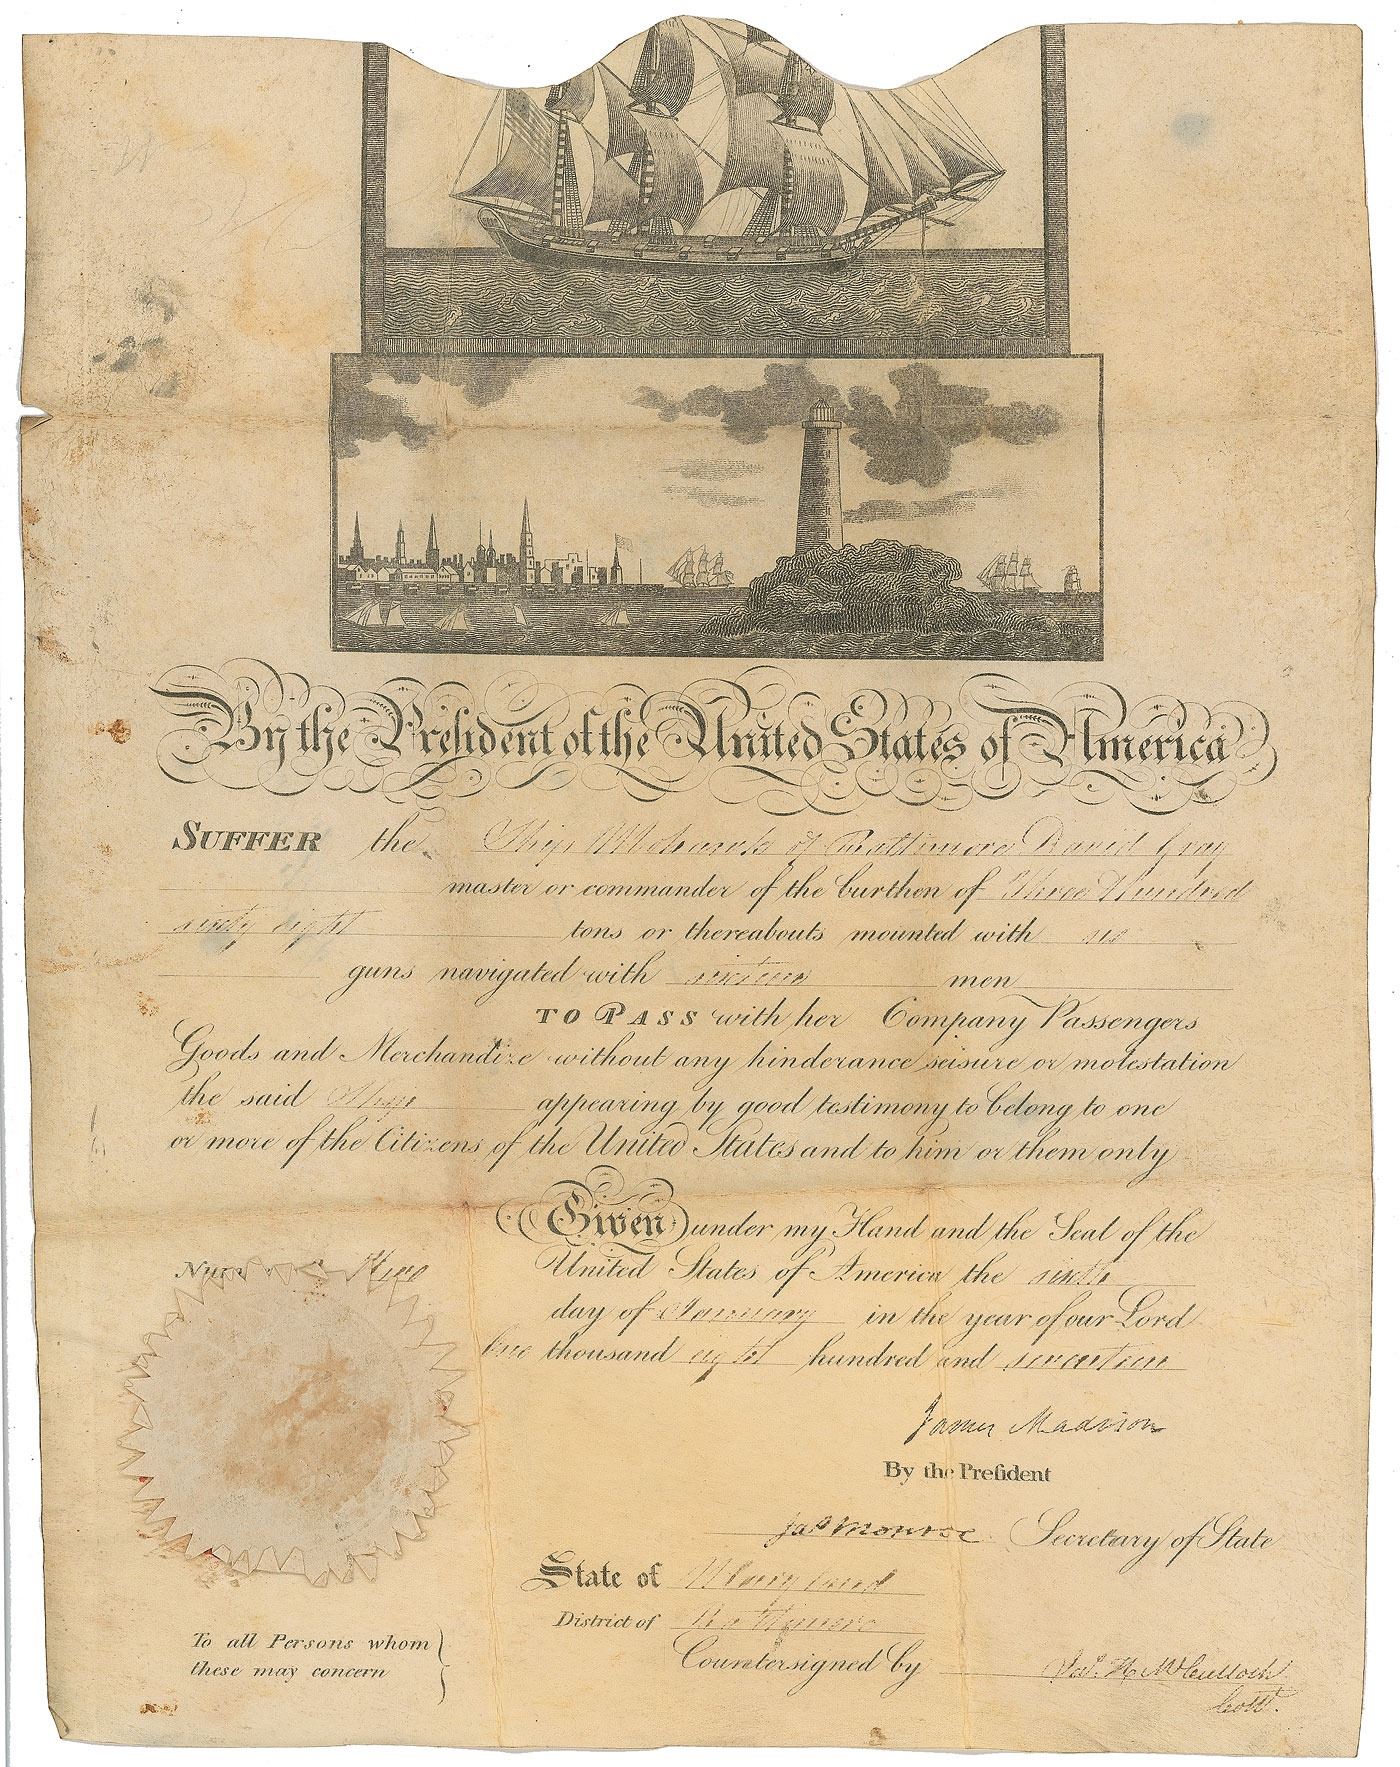 By the President of the United States of America
SUFFER the Ship Mohawk of Baltimore David Gray
master or commander of the burthen of Three Hundred
sixty eight tons or thereabouts mounted with
guns navigated with sixteen men
TO PASS with her Company Passengers
Goods and Merchandize without any hinderance seisure or molestation
the said Ship appearing by good testimony to belong to one
or more of the Citizens of the United States and to him or them only
Given under my Hand and the Seal of the
United States of America the sixth
day of January in the year of our Lord
One thousand eight hundred and seventeen
James Madison
By the President
Jas Monroe Secretary of State
State of Maryland
District of Baltimore
Countersigned by Jas. H. McCulloch
Collr.
To all Persons whom
these may concern